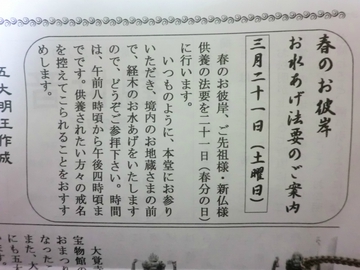 春のお彼岸
お水あげ法要のご案内
三月二十一日（土曜日）
春のお彼岸、ご先祖様・新仏様
供養の法要を二十一日（春分の日）
に行います。
いつものように、本堂にお参り
いただき、境内のお地蔵さまの前
で、経木のお水あげをいたします
ので、どうぞご参拝下さい。時間
は、午前八時頃から午後四時頃ま
でです。供養されたい方々の戒名
を控えてこられることをおすす
めします。
五大明王作成
大覚
宝物館
おまつ
なったこ
また、
にも五大